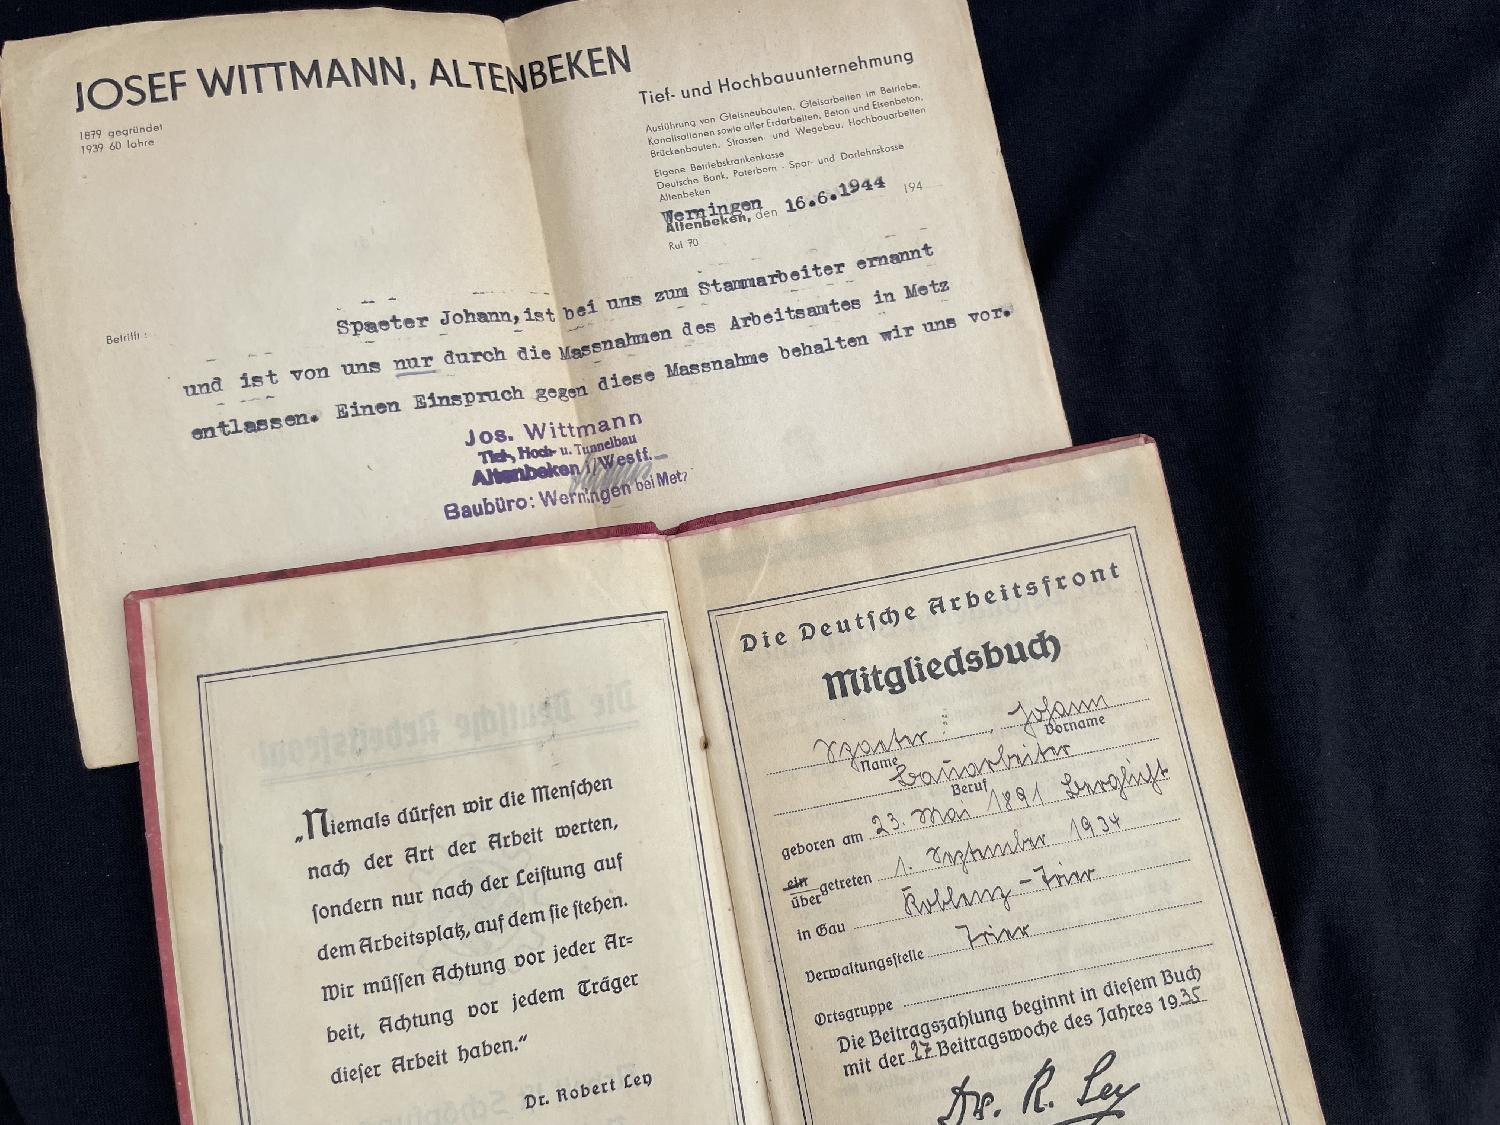 JOSEF WITTMANN, ALTENBEKEN
1879 gegründet
1939 60 Jahre
Tief- und Hochbauunternehmung
Ausführung von Gleisneubauten, Gleisarbeiten im Betriebe,
Kanalisationen sowie aller Erdarbeiten, Beton und Eisenbeton,
Brückenbauten, Strassen- und Wegebau, Hochbauarbeiten
Eigene Betriebskrankenkasse
Deutsche Bank, Paterborn - Spar- und Darlehnskasse
Altenbeken
Werningen
Altenbeken, den 16.6.1944 194
Ruf 70
Betrifft:
Spaeter Johann, ist bei uns zum Stammarbeiter ernannt
und ist von uns nur durch die Massnahmen des Arbeitsamtes in Metz
entlassen. Einen Einspruch gegen diese Massnahme behalten wir uns vor.
Jos. Wittmann
Tief-, Hoch- u. Tunnelbau
Altenbeken i/Westf.
Baubüro: Werningen bei Metz
Die Deutsche Arbeitsfront
„Niemals dürfen wir die Menschen
nach der Art der Arbeit werten,
sondern nur nach der Leistung auf
dem Arbeitsplatz, auf dem sie stehen.
Wir müssen Achtung vor jeder Ar-
beit, Achtung vor jedem Träger
dieser Arbeit haben.“
Dr. Robert Ley
Die Deutsche Arbeitsfront
Mitgliedsbuch
Spaeter Johann
Name Vorname
Bauarbeiter
Beruf
geboren am 23. Mai 1891 Berglicht
ein
übergetreten 1. September 1934
in Gau Koblenz-Trier
Verwaltungsstelle Trier
Ortsgruppe
Die Beitragszahlung beginnt in diesem Buch
mit der 27 Beitragswoche des Jahres 1935
Dr. R. Ley